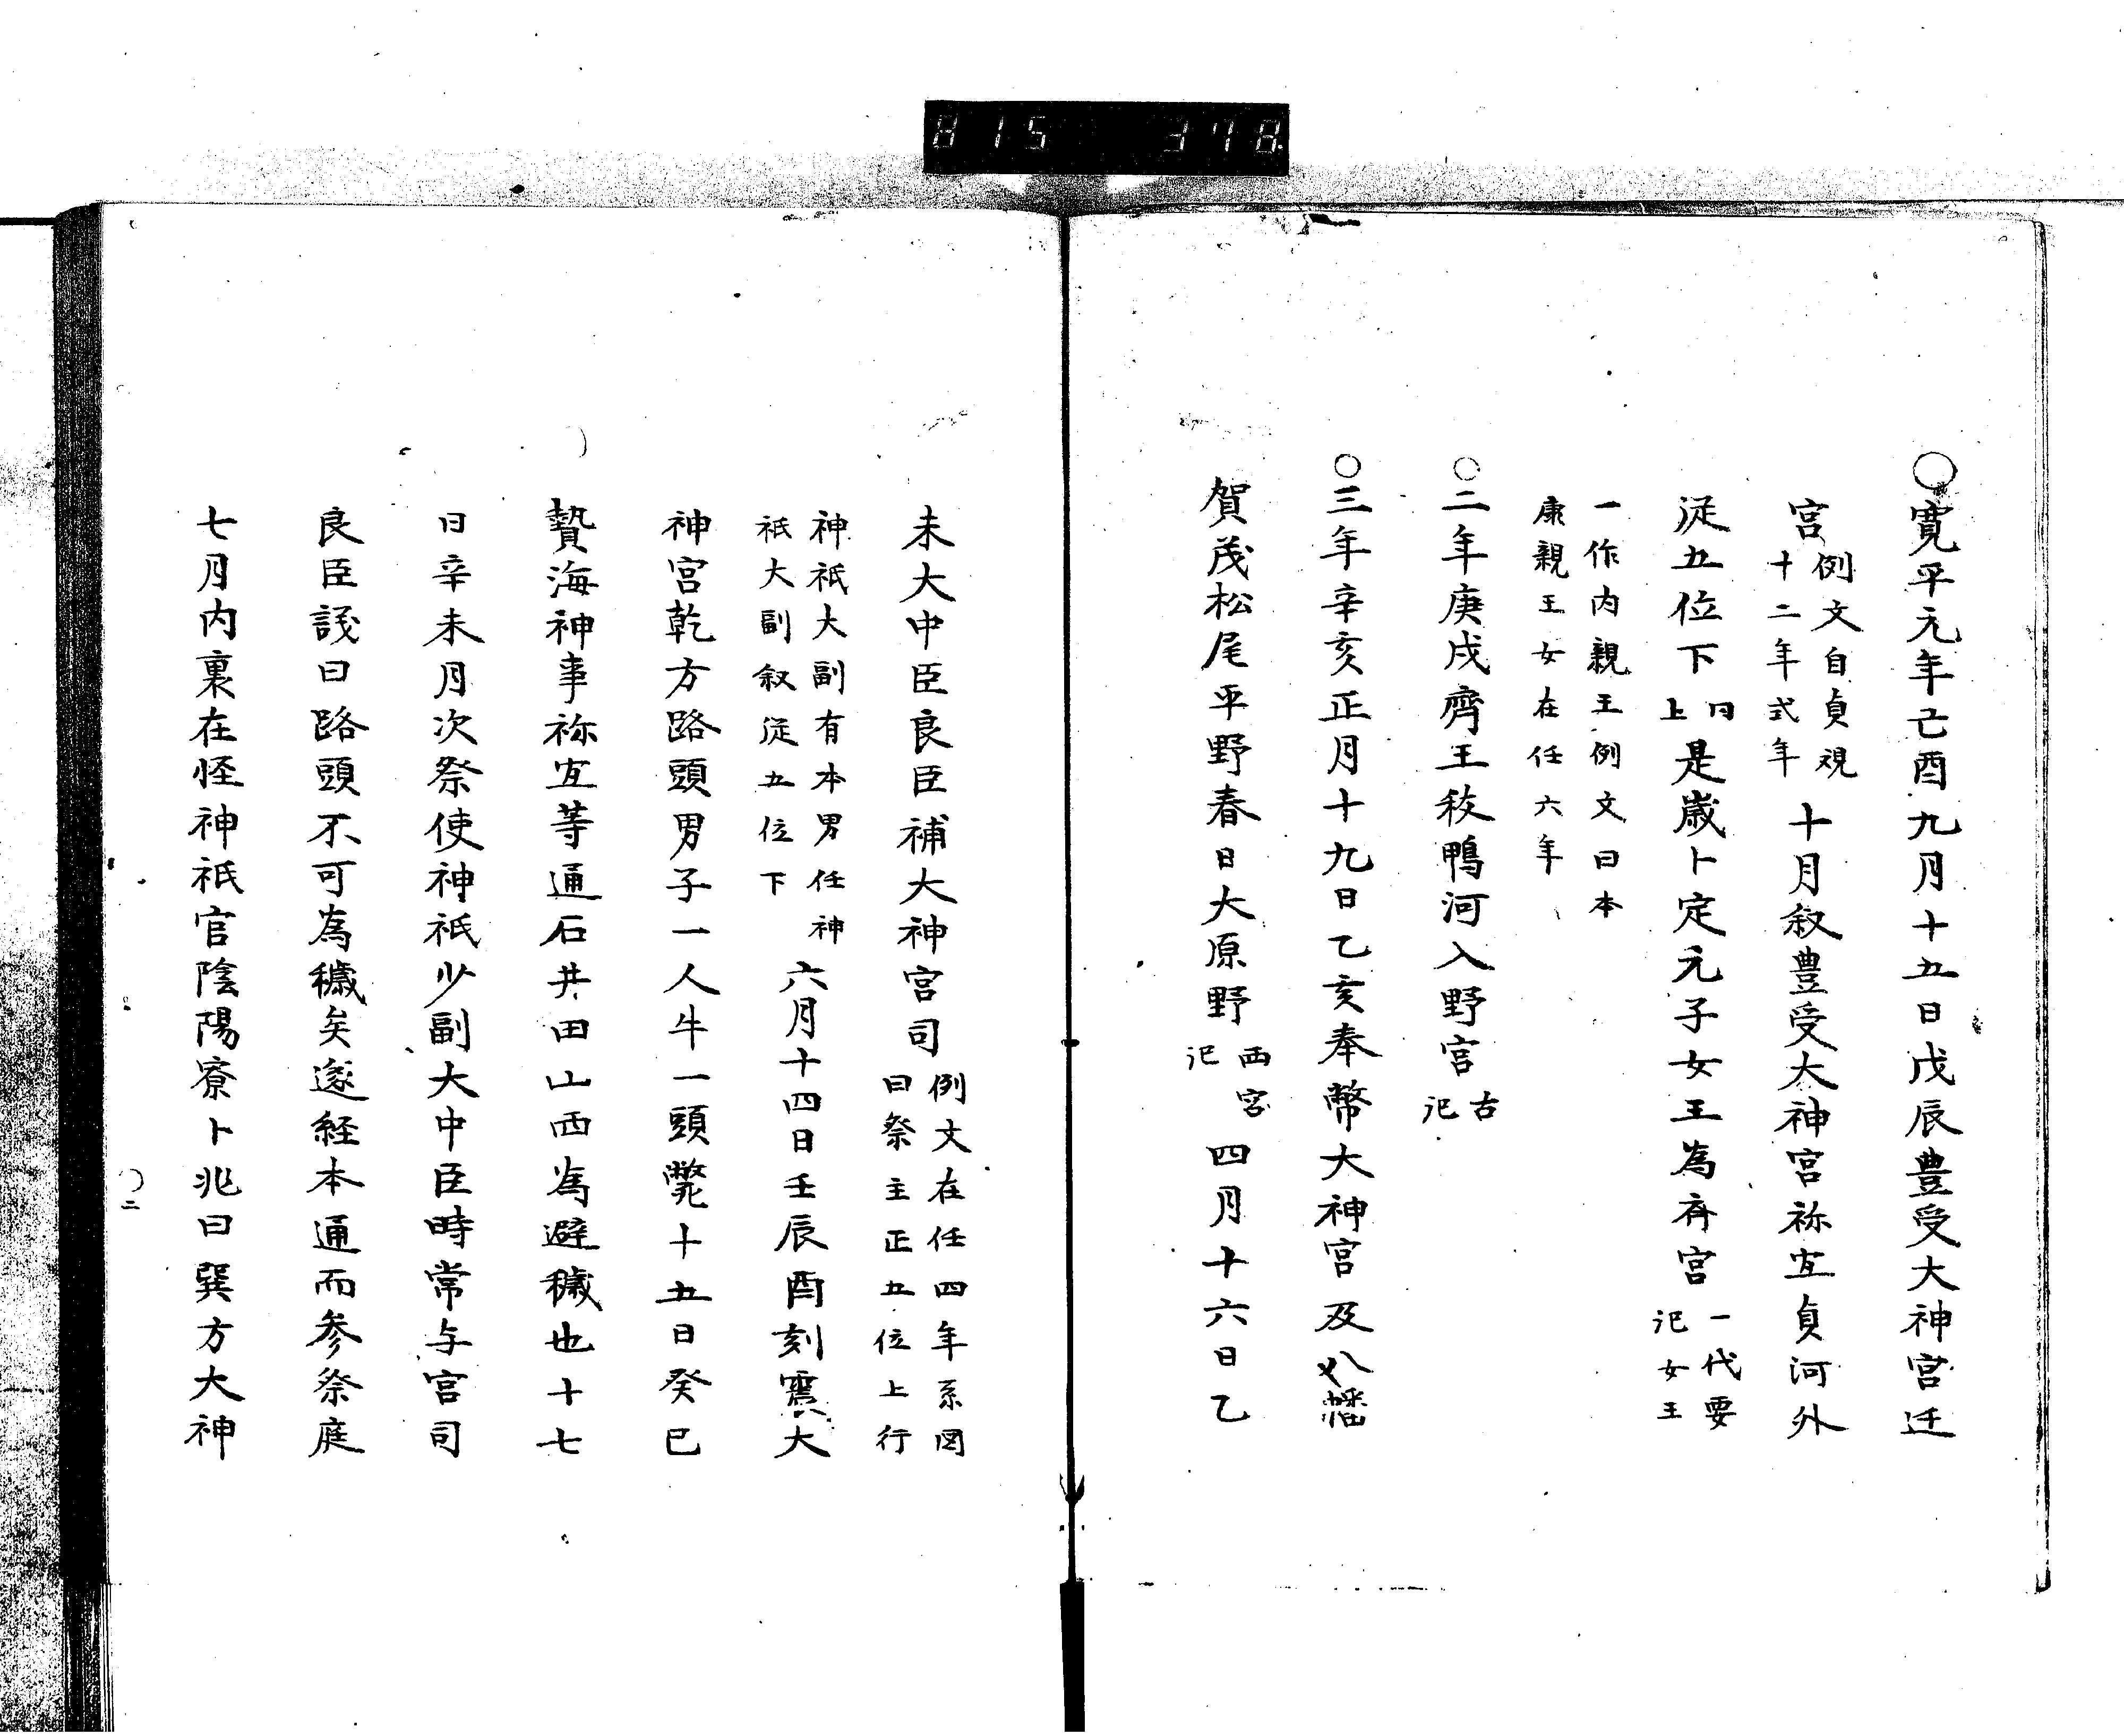 815 378
○寛平元年己酉九月十五日戊辰豊受大神宮迁
宮
例文自貞観
十二年式年
十月叙豊受大神宮祢宜貞河外
従五位下
同
上
是歳卜定元子女王為斉宮
一代要
記女王
一作内親王例文曰本
康親王女在任六年
○二年庚戌齊王秡鴨河入野宮
古
記
○三年辛亥正月十九日乙亥奉幣大神宮及八幡
賀茂松尾平野春日大原野
西宮
記
四月十六日乙
未大中臣良臣補大神宮司
例文在任四年系図
曰祭主正五位上行
神祇大副有本男任神
祇大副叙従五位下
六月十四日壬辰酉刻震大
神宮乾方路頭男子一人牛一頭斃十五日癸巳
贄海神事祢宜等通石井田山西為避穢也十七
日辛未月次祭使神祇少副大中臣時常与宮司
良臣議曰路頭不可為穢矣遂経本通而参祭庭
七月内裏在怪神祇官陰陽寮卜兆曰巽方大神
二